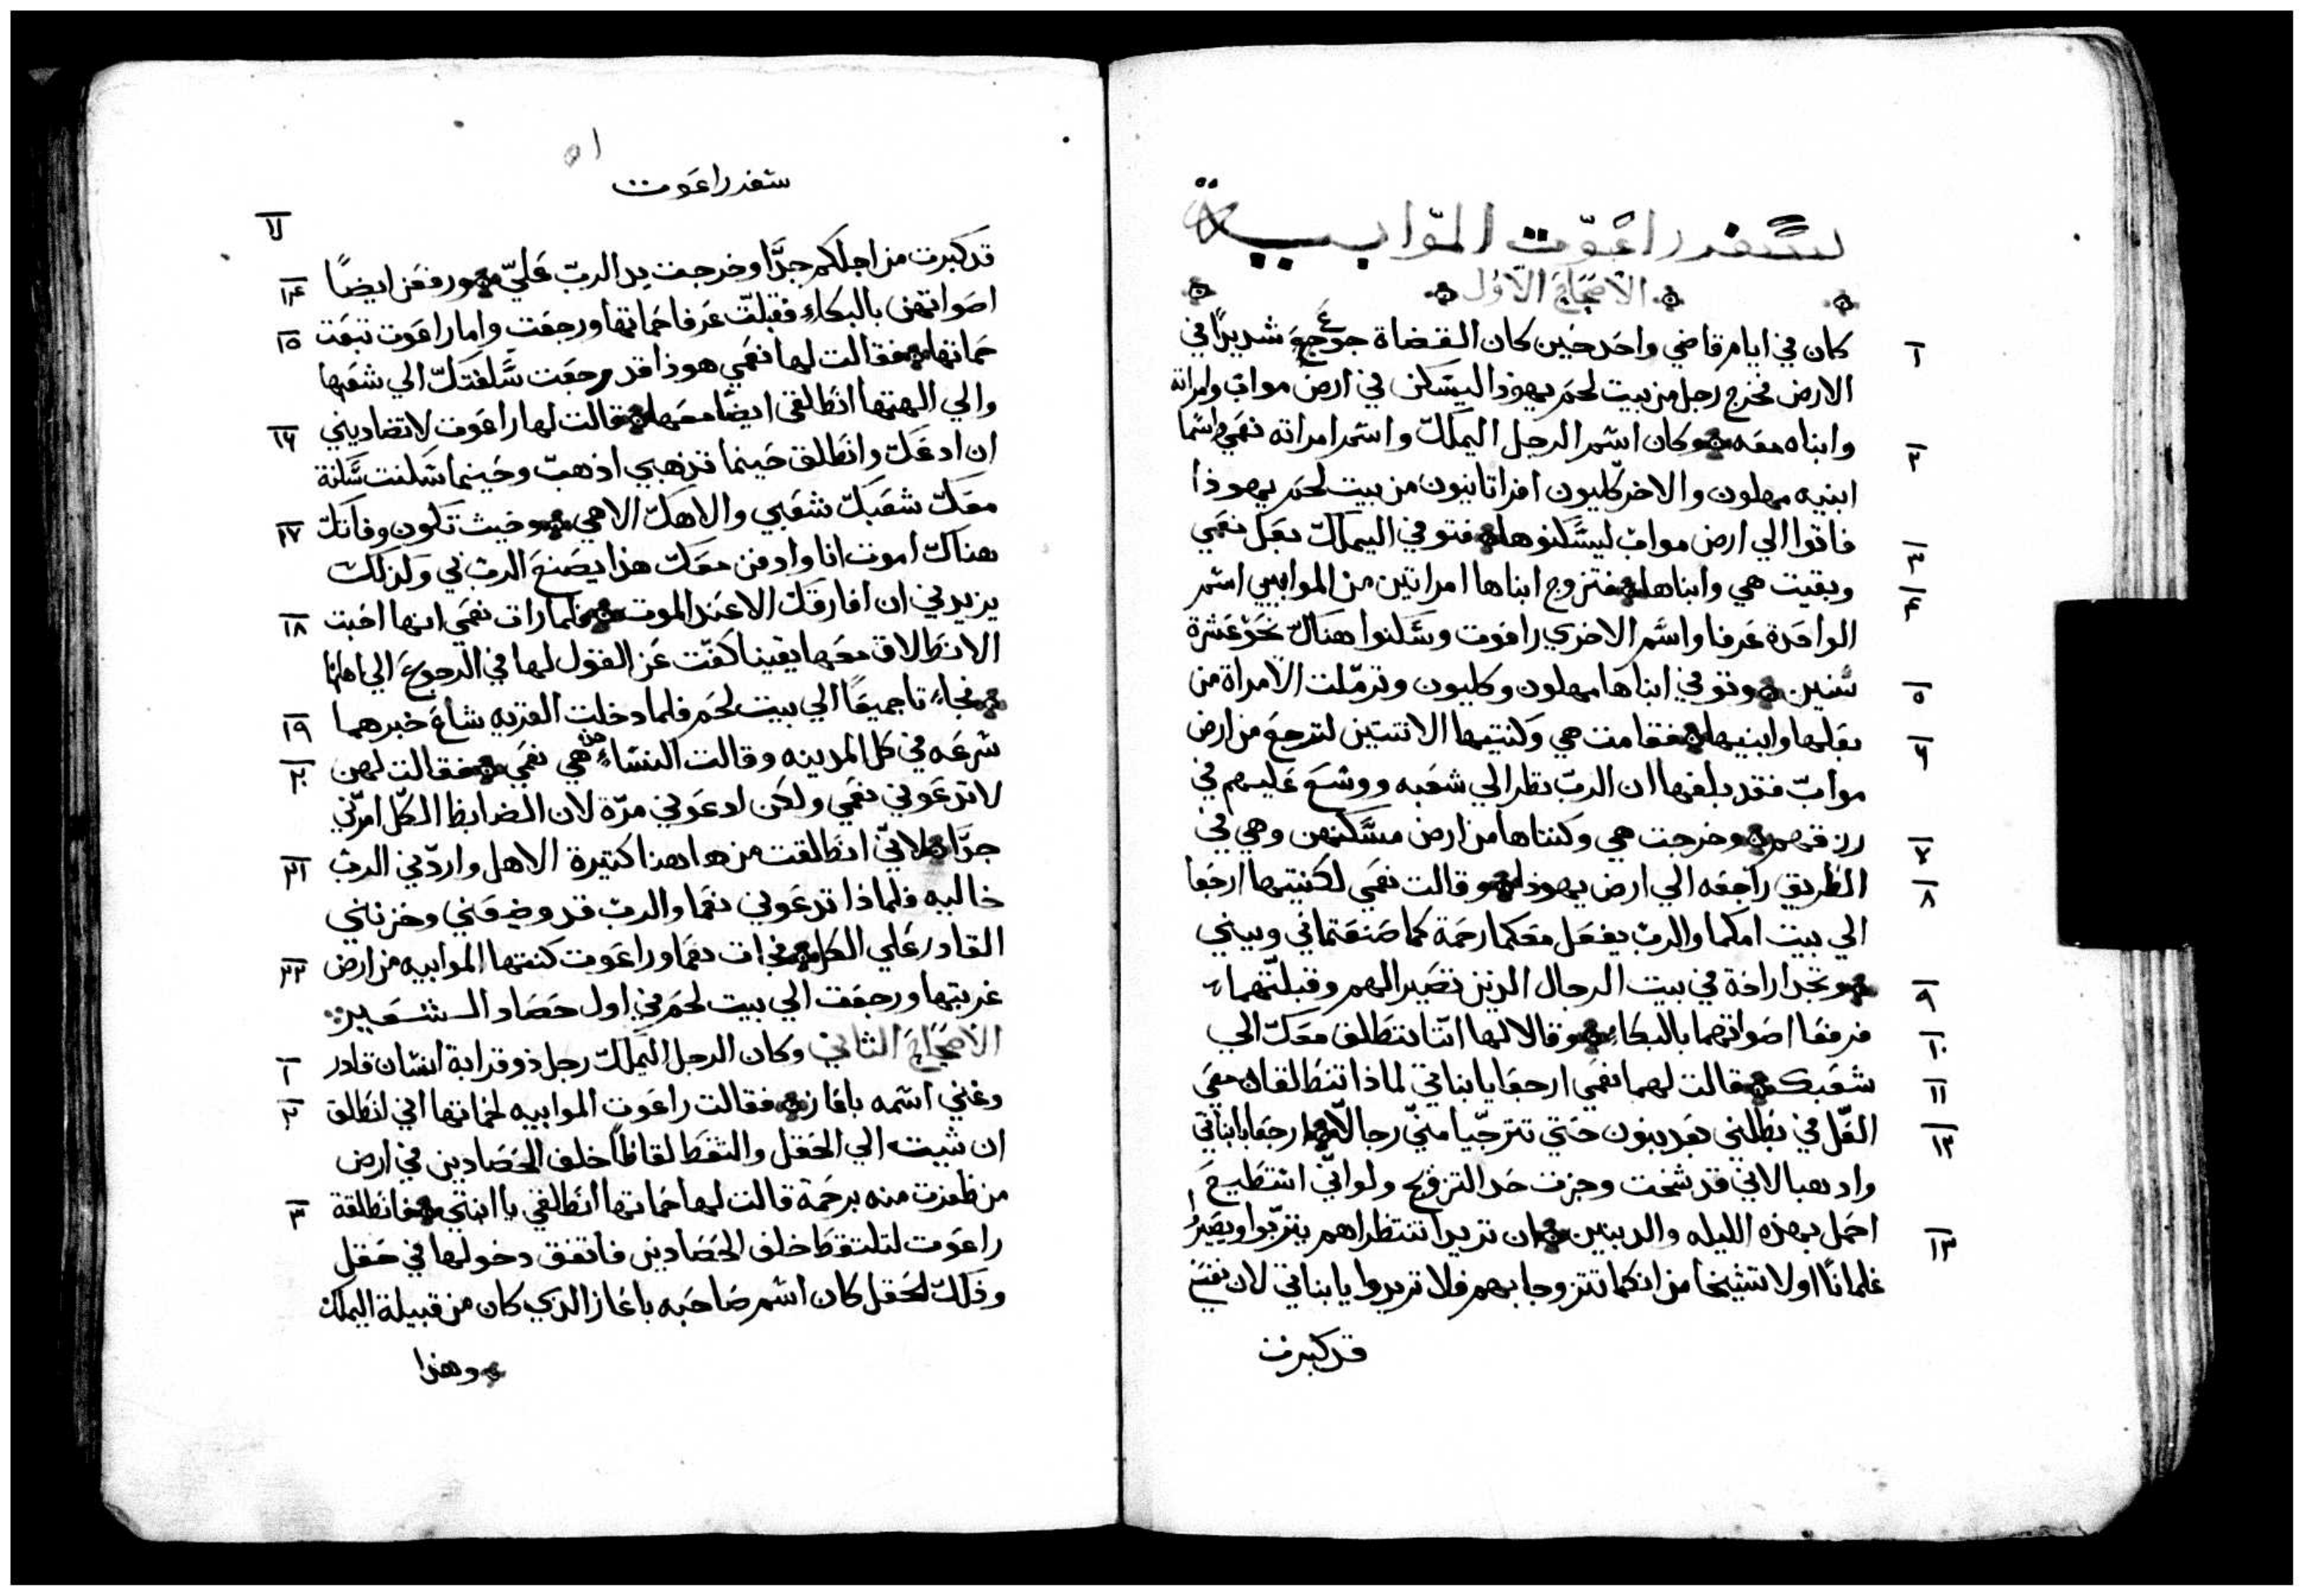 سفر راعوت الموابية
الاصحاح الاول
١ كان في ايام قاضي واحد حين كان القضاة جوع شديدًا في
الارض فخرج رجل من بيت لحم يهوذا ليسكن في ارض مواب وامراته
٢ وابناه معه وكان اسم الرجل اليملك واسم امراته نعمي واسما
ابنيه مهلون والاخر كليون افراتانيون من بيت لحم يهوذا
٣ فاتوا الي ارض مواب ليسكنوها فتوفي اليملك بعل نعمي
٤ وبقيت هي وابناها فتزوج ابناها امراتين من الموابيي اسم
الواحدة عرفا واسم الاخري راعوت وسكنوا هناك نحو عشرة
٥ سنين وتوفي ابناها مهلون وكليون وترملت الامراة من
٦ بعلها وابنيها فقامت هي وكنتيها الاتنتين لترجع من ارض
مواب فقد بلغها ان الرب نظر الي شعبه ووسع عليهم في
٧ رزقهم وخرجت هي وكنتاها من ارض مسكنهن وهي في
٨ الطريق راجعه الي ارض يهوذا وقالت نعمي لكنتيها ارجعا
الي بيت امكما والرب يفعل معكما رحمة كما صنعتما في وبيني
٩ وتجدا راحة في بيت الرجال الذين تصير الهم وقبلتهما
١٠ فرفعا اصواتهما بالبكاء وقالا لها اننا ننطلق معك الي
١١ شعبك فقالت لهما نعمي ارجعا يا بناتي لماذا تنطلقان معي
١٢ العل في بطني بعد بنون حتي تترجيا مني رجالا ارجعا يا بناتي
واذهبا لاني قد شخت وجزت حد التزويج ولو اني استطيع
١٣ احمل بهذه الليله والد بنين ان تريدا تنتظراهم يتربوا ويصيروا
غلمانًا اولا تشيخا من انكما تتزوجا بهم فلا تريدوا يا بناتي لان نفسي
قد كبرت
سفر راعوت
قد كبرت من اجلكم جدًا وخرجت يد الرب علي
١٤ ورفعن ايضًا
١٥ اصواتهن بالبكاء فقبلت عرفا حماتها ورجعت واما راعوت تبعت
حماتها فقالت لها نعمي هوذا قد رجعت سلفتك الي شعبها
١٦ والي الهتها انطلقي ايضًا معها فقالت لها راعوت لا تضاديني
ان ادعك وانطلق حينما تذهبي اذهب وحينما سكنت سكنة
١٧ معك شعبك شعبي والاهك الاهي وحيث تكون وفاتك
هناك اموت انا وادفن معك هذا يصنع الرب لي وكذلك
١٨ يزيدني ان افارقك الا عند الموت فلما رات نعمي انها احبت
الانطلاق معها يقينا كفت عن القول لها في الرجوع الي اهلها
١٩ فجاءتا جميعًا الي بيت لحم فلما دخلت القريه شاع خبرهما
٢٠ سرعه في كل المدينه وقالت النساء هذه هي نعمي فقالت لهن
لا تدعوني نعمي ولكن ادعوني مرة لان الضابط الكل امرني
٢١ جدًا لاني انطلقت من هاهنا كتيرة الاهل واردني الرب
خاليه فلماذا تدعوني نعما والرب قد وضعني وحزنني
٢٢ القادر علي الكل فجات نعما وراعوت كنتها الموابيه من ارض
غربتها ورجعت الي بيت لحم في اول حصاد الشعير
١ الاصحاح الثاني وكان الرجل اليملك رجل ذو قرابة انسان قادر
٢ وغني اسمه باعاز فقالت راعوت الموابيه لحماتها اني انطلق
ان شيت الي الحقل والتقط لقاطًا خلف الحصادين في ارض
٣ من ظفرت منه برحمة قالت لها حماتها انطلقي يا ابنتي فانطلقة
راعوت لتلتقط خلف الحصادين فاتفق دخولها في حقل
وذلك الحقل كان اسم صاحبه باعاز الذي كان من قبيلة اليملك
وهذا